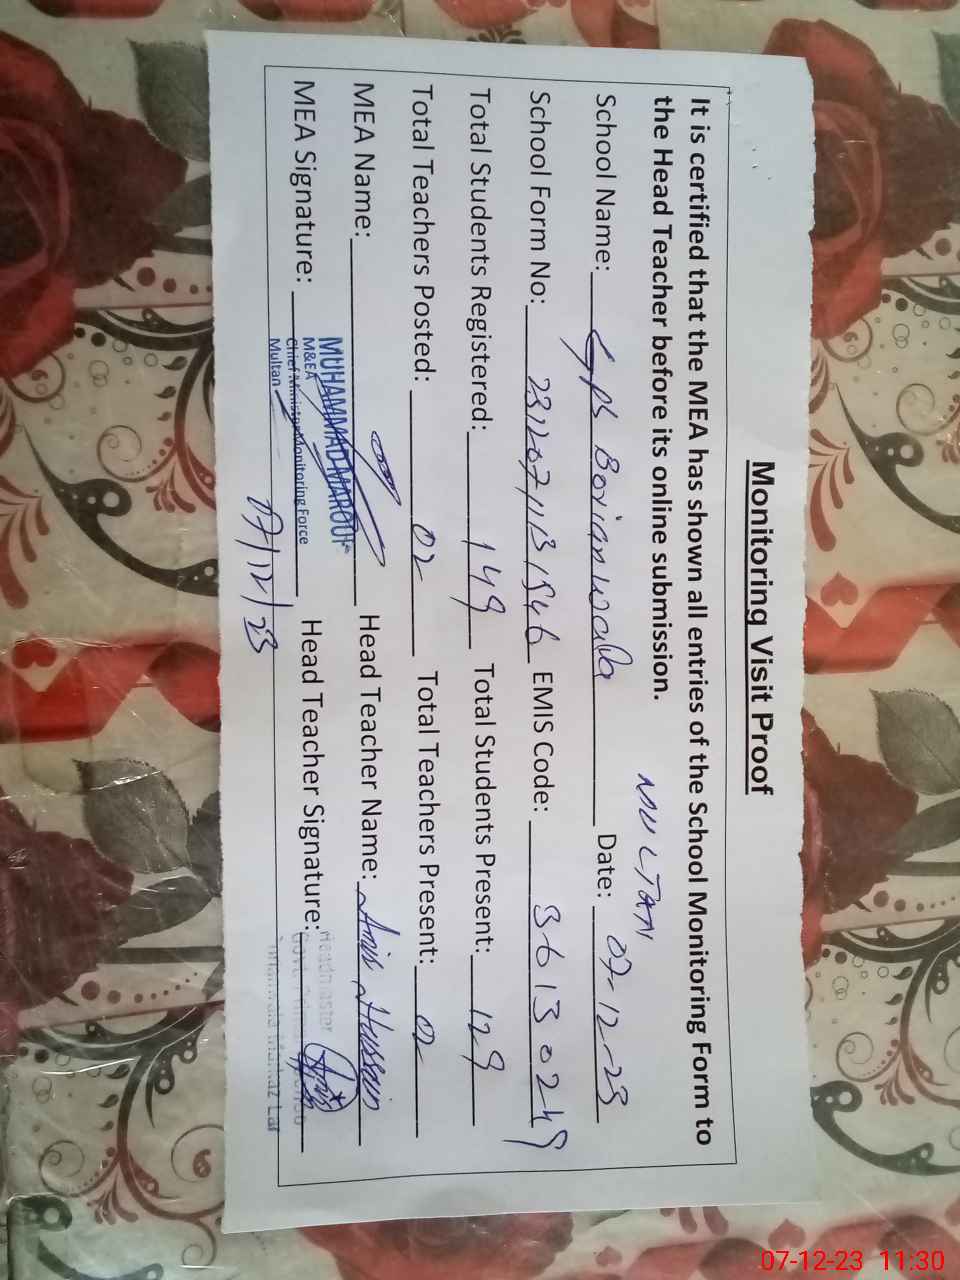 Monitoring Visit Proof
It is certified that the MEA has shown all entries of the School Monitoring Form to
the Head Teacher before its online submission.
MULTAN
School Name: Gps Borianwala Date: 07-12-23
School Form No: EMIS Code: 36130249
Total Students Registered: 149 Total Students Present: 129
Total Teachers Posted: 02 Total Teachers Present: 02
MEA Name: MUHAMMAD MAROOF Head Teacher Name: Anis Hussain
MEA Signature: M&EA Head Teacher Signature: Headmaster
Chief Minister Monitoring Force
Multan Markaz Lar
07/12/23
07-12-23 11:30